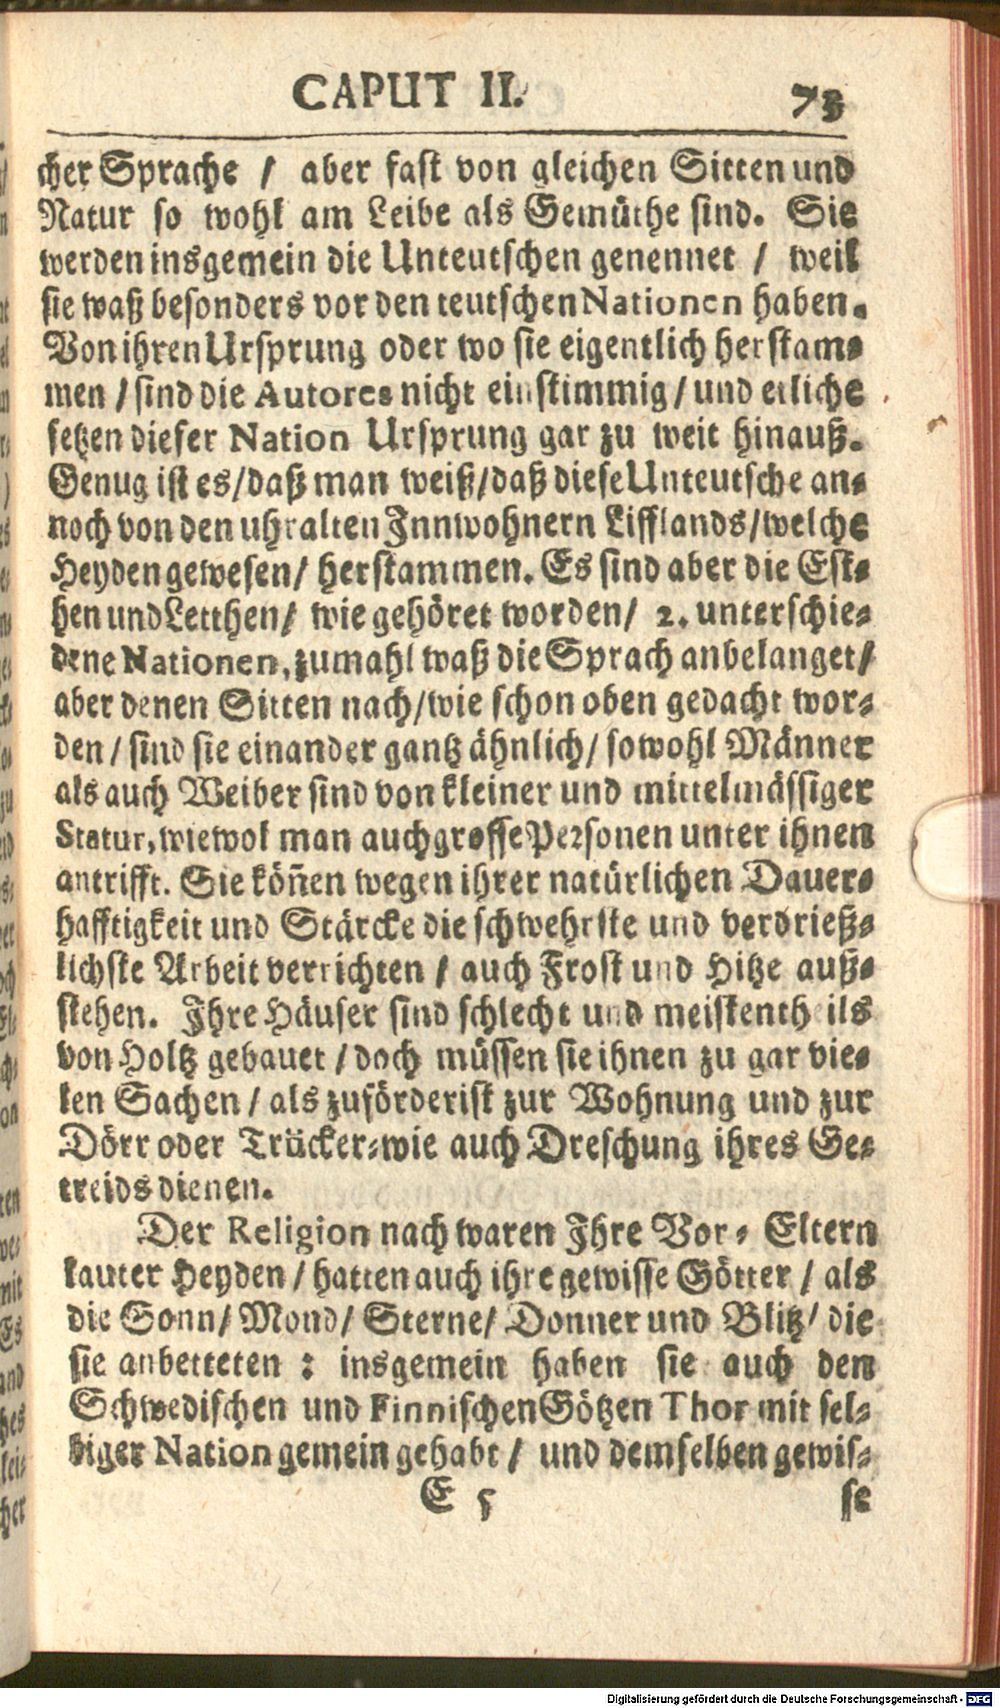 CAPUT II. 73
cher Sprache / aber fast von gleichen Sitten und
Natur so wohl am Leibe als Gemüthe sind. Sie
werden insgemein die Unteutschen genennet / weil
sie waß besonders vor den teutschen Nationen haben.
Von ihren Ursprung oder wo sie eigentlich herstam⸗
men / sind die Autores nicht einstimmig / und etliche
setzen dieser Nation Ursprung gar zu weit hinauß.
Genug ist es/daß man weiß/daß diese Unteutsche an⸗
noch von den uhralten Innwohnern Lifflands/welche
Heyden gewesen/ herstammen. Es sind aber die Est⸗
hen und Letthen/ wie gehöret worden/ 2. unterschie⸗
dene Nationen, zumahl waß die Sprach anbelanget/
aber denen Sitten nach/wie schon oben gedacht wor⸗
den / sind sie einander gantz ähnlich/ sowohl Männer
als auch Weiber sind von kleiner und mittelmässiger
Statur, wiewol man auch grosse Personen unter ihnen
antrifft. Sie köñen wegen ihrer natürlichen Dauer⸗
hafftigkeit und Stärcke die schwehrste und verdrieß⸗
lichste Arbeit verrichten / auch Frost und Hitze auß⸗
stehen. Ihre Häuser sind schlecht und meistentheils
von Holtz gebauet / doch müssen sie ihnen zu gar vie⸗
len Sachen / als zuförderist zur Wohnung und zur
Dörr oder Trücker⸗wie auch Dreschung ihres Ge⸗
treids dienen.
Der Religion nach waren Ihre Vor⸗ Eltern
lauter Heyden / hatten auch ihre gewisse Götter / als
die Sonn/ Mond/ Sterne/ Donner und Blitz/ die
sie anbetteten : insgemein haben sie auch den
Schwedischen und Finnischen Götzen Thor mit sel⸗
biger Nation gemein gehabt / und demselben gewis⸗
E 5 se
Digitalisierung gefördert durch die Deutsche Forschungsgemeinschaft - DFG